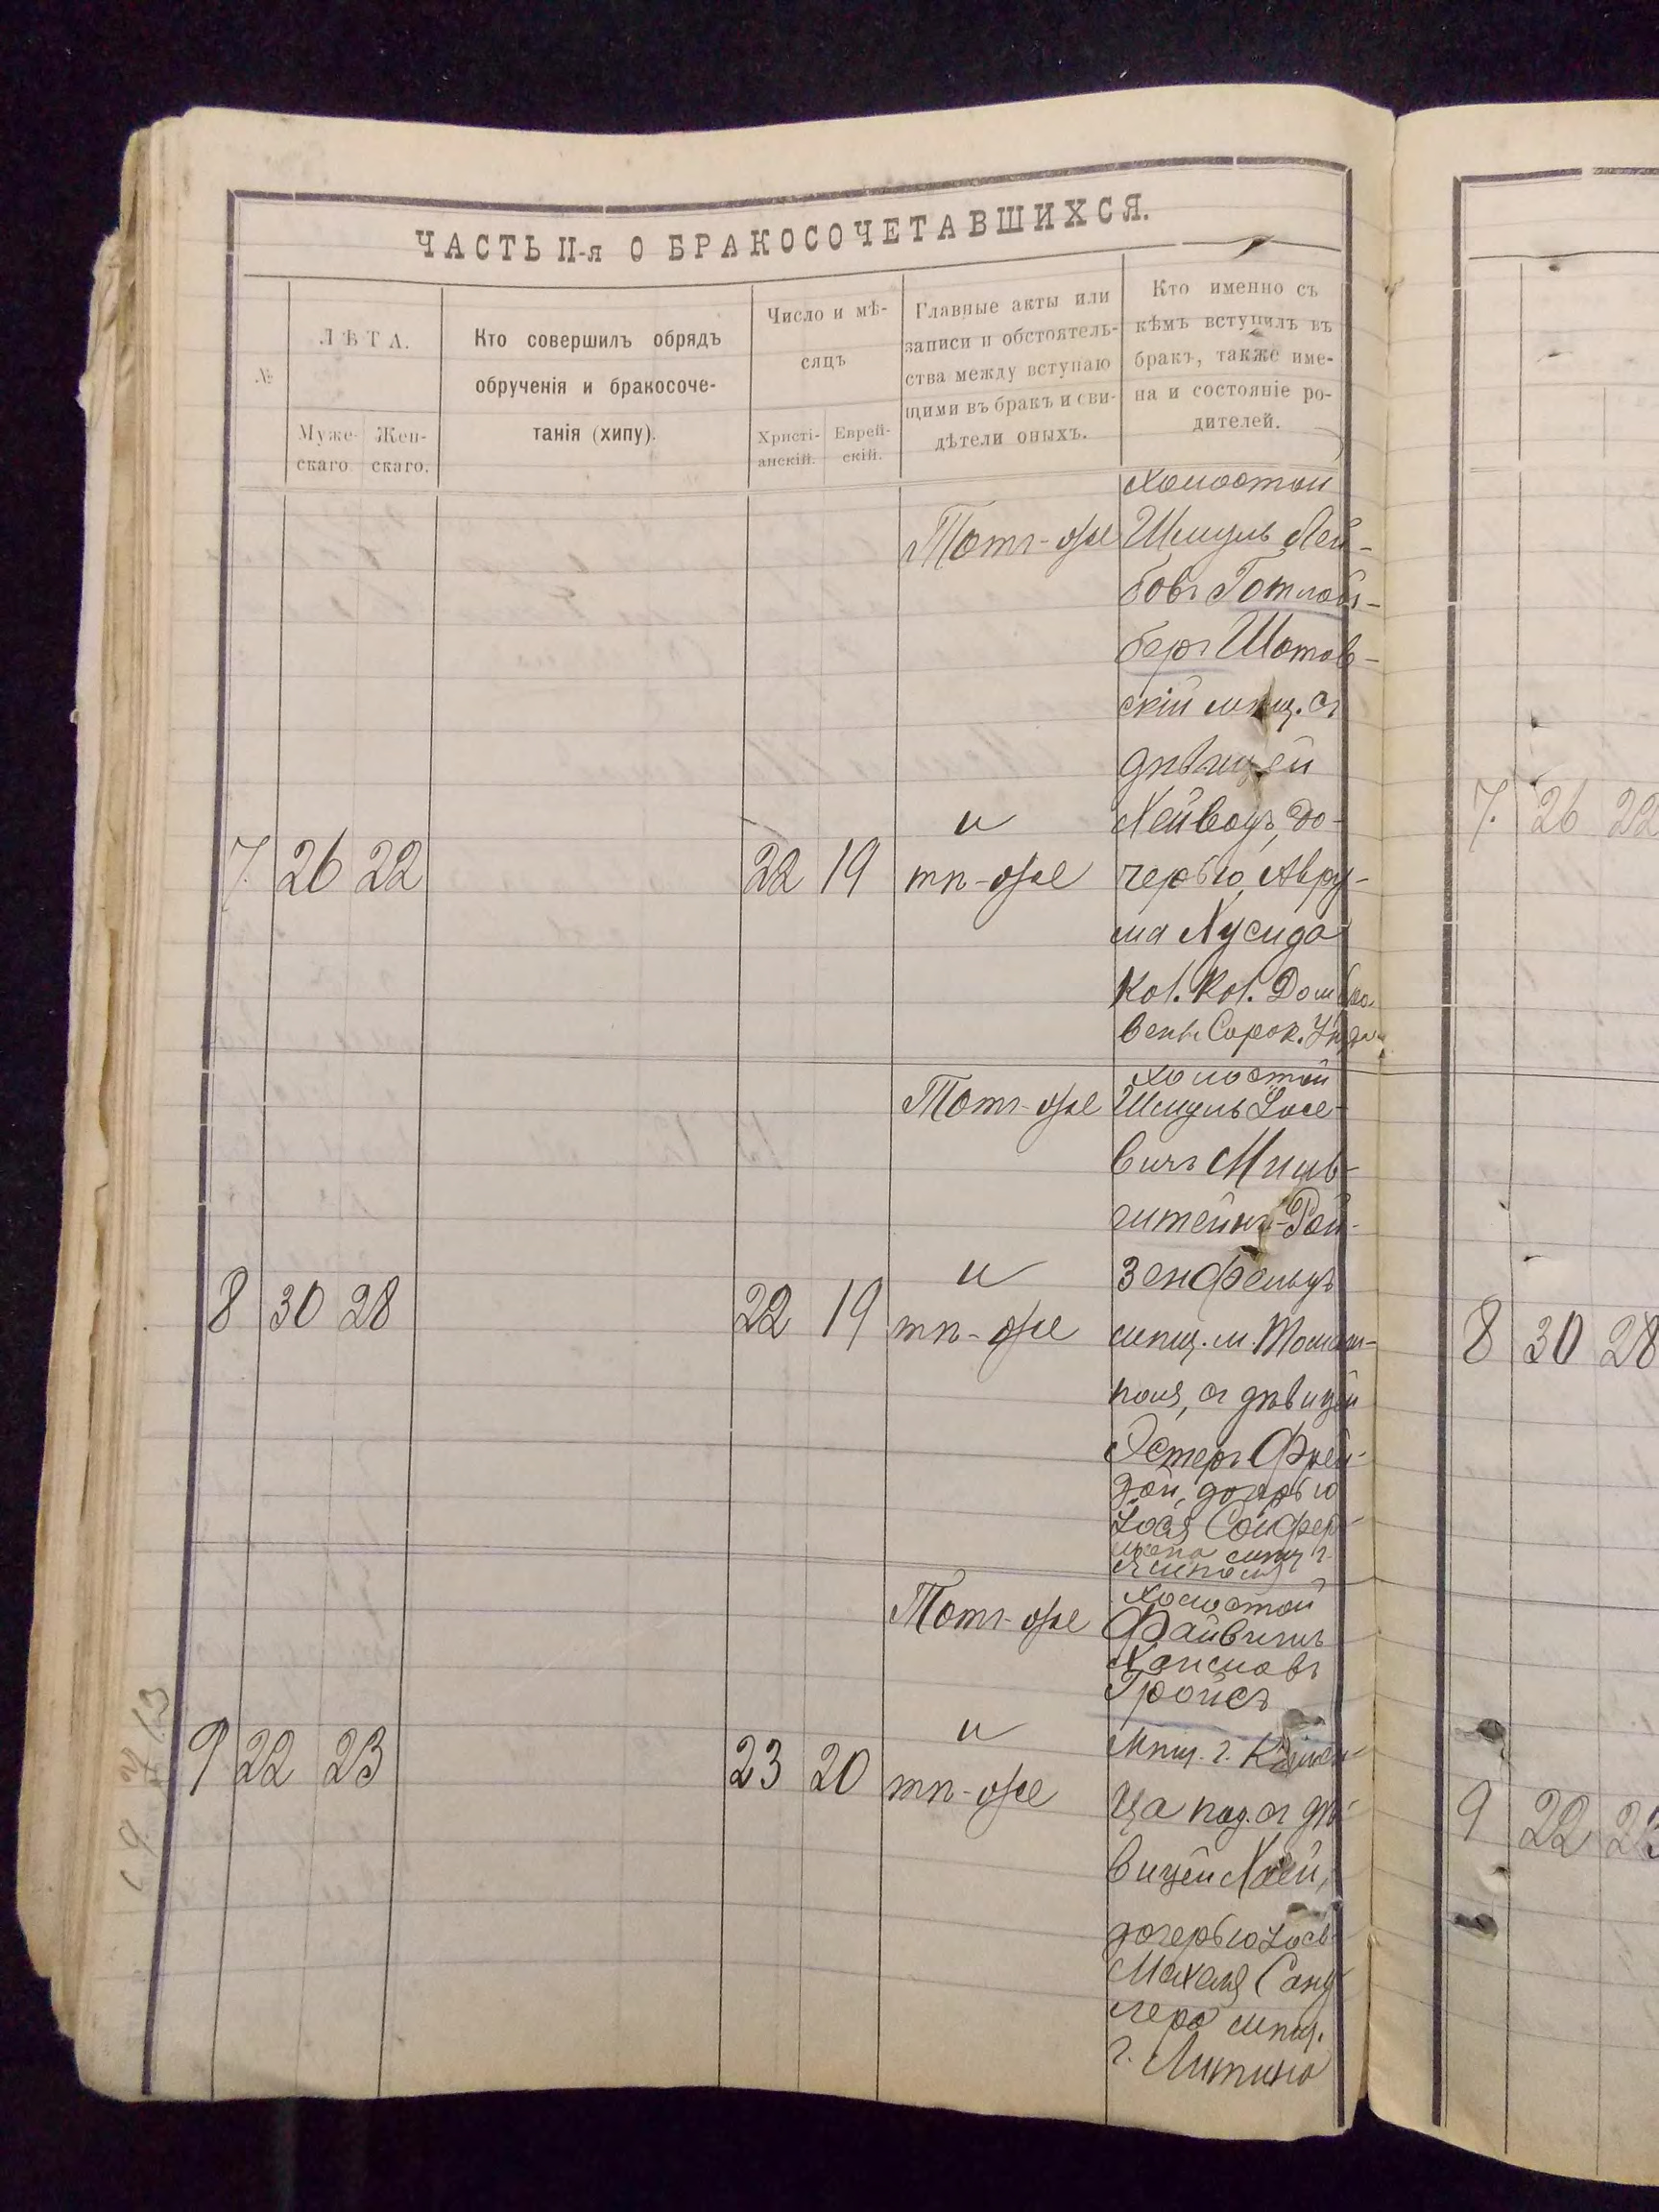 ЧАСТЬ II-я О БРАКОСОЧЕТАВШИХСЯ.
№
ЛѢТА.
Муже-
скаго
Жен-
скаго.
Кто совершилъ обрядъ
обрученія и бракосоче-
танія (хипу).
Число и мѣ-
сяцъ
Христі-
анскій.
Еврей-
скій.
Главные акты или
записи и обстоятель-
ства между вступаю
щими въ бракъ и сви-
дѣтели оныхъ.
Кто именно съ
кѣмъ вступилъ въ
бракъ, также име-
на и состояніе ро-
дителей.
7. 26 22
22 19
Тотъ-же
и
тѣ-же
Холостой
Шмуль Лей-
бовъ Готлибъ-
бергъ Шатов-
скій мѣщ. съ
дѣвицей
Хейведъ, до-
черью Авру-
ма Хусида
кол. кол. Домбро
вены Сорок. Уѣзда
8 30 28
22 19
Тотъ-же
и
тѣ-же
Холостой
Шмуль Іосе-
вичъ Миль-
штейнъ-Рой-
зенфельдъ
мѣщ. м. Томаш-
поля, съ дѣвицей
Эстеръ Фрей-
дой, дочерью
Іося Сойфер
мана мѣщ г.
Ямполя
9 22 23
23 20
Тотъ-же
и
тѣ-же
Холостой
Файвишъ
Хаимовъ
Гройсъ
Мѣщ. г. Каме-
ца под. съ дѣ-
вицей Хаей,
дочерью Іось
Михеля Санд
лера мѣщ.
г. Литина
7. 26 22
8 30 28
9 22 23